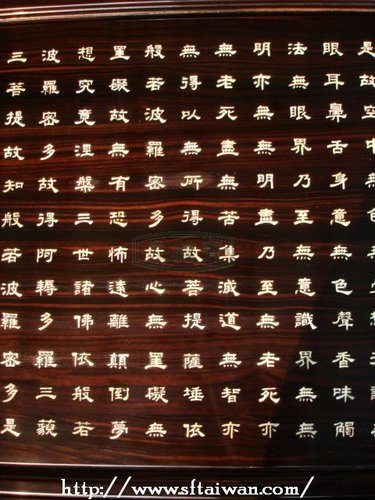 是故空中
眼耳鼻舌身意無色聲香味觸
法無眼界乃至無意識界無無
明亦無無明盡乃至無老死無
無老死盡無苦集滅道無智亦
無得以無所得故菩提薩埵依
般若波羅密多故心無罣礙無
罣礙故無有恐怖遠離顛倒夢
想究竟涅槃三世諸佛依般若
波羅密多故得阿耨多羅三藐
三菩提故知般若波羅密多是
http://www.sftaiwan.com/